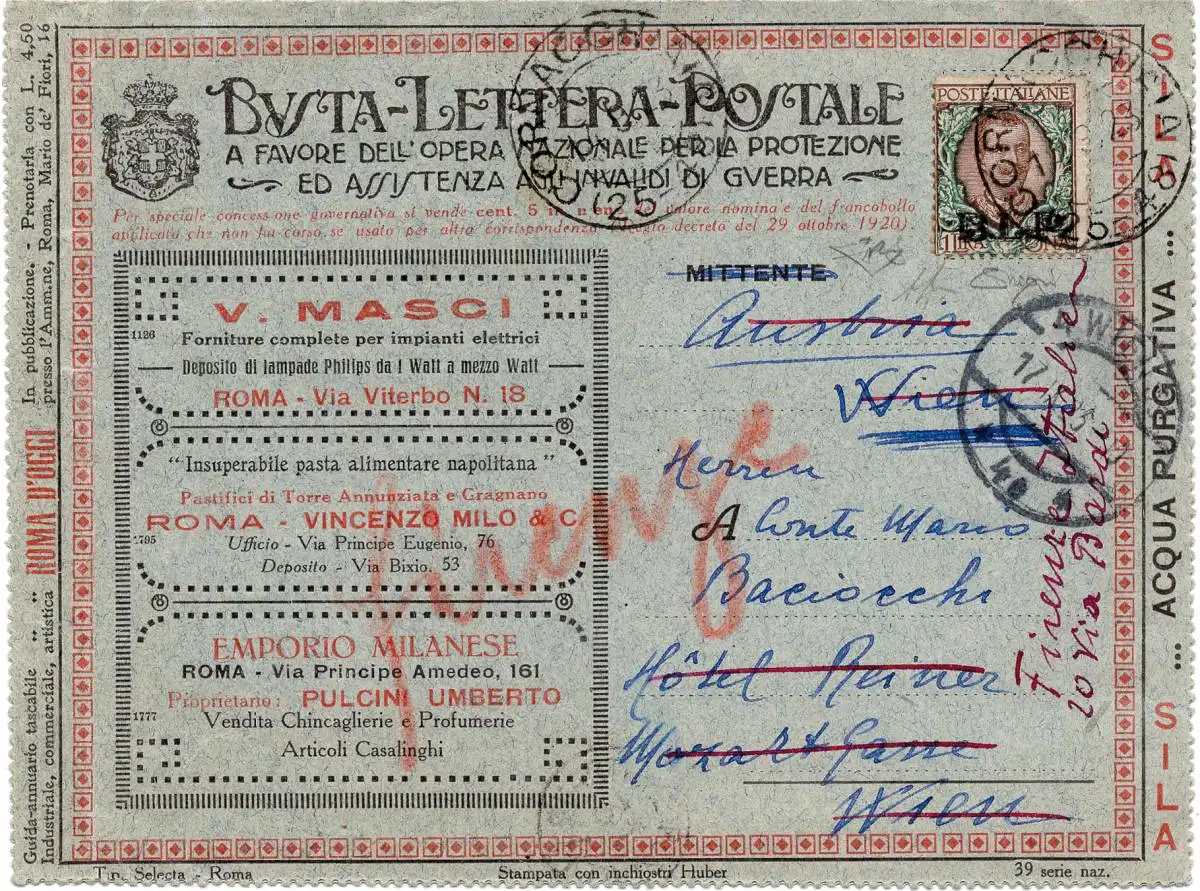 BVSTA-LETTERA-POSTALE
A FAVORE DELL'OPERA NAZIONALE PER LA PROTEZIONE
ED ASSISTENZA AGLI INVALIDI DI GVERRA
Per speciale concessione governativa si vende cent. 5 in valore nominale del francobollo
applicato che non ha corso se usato per altra corrispondenza decreto del 29 ottobre 1920).
POSTE ITALIANE
B.L.P.
1 LIRA UNA
25
MITTENTE
1126
V. MASCI
Forniture complete per impianti elettrici
Deposito di lampade Philips da 1 Watt a mezzo Watt
ROMA - Via Viterbo N. 18
"Insuperabile pasta alimentare napolitana"
Pastifici di Torre Annunziata e Gragnano
ROMA - VINCENZO MILO & C.
1795
Ufficio - Via Principe Eugenio, 76
Deposito - Via Bixio. 53
EMPORIO MILANESE
ROMA - Via Principe Amedeo, 161
Proprietario: PULCINI UMBERTO
1777
Vendita Chincaglierie e Profumerie
Articoli Casalinghi
Austria
Wien
Herren
A Conte Mario
Baciocchi
Hôtel Reiner
Mozart Gasse
Wien
Firenze Italien
20 Via Bardi
In pubblicazione. - Prenotarla con L. 4,50
presso l'Amm.ne, Roma, Mario de' Fiori, 16
ROMA D'OGGI
Guida-annuario tascabile
Industriale, commerciale, artistica
SILA ... ACQUA PURGATIVA ... SILA
Tip. Selecta - Roma
Stampata con inchiostri Huber
39 serie naz.